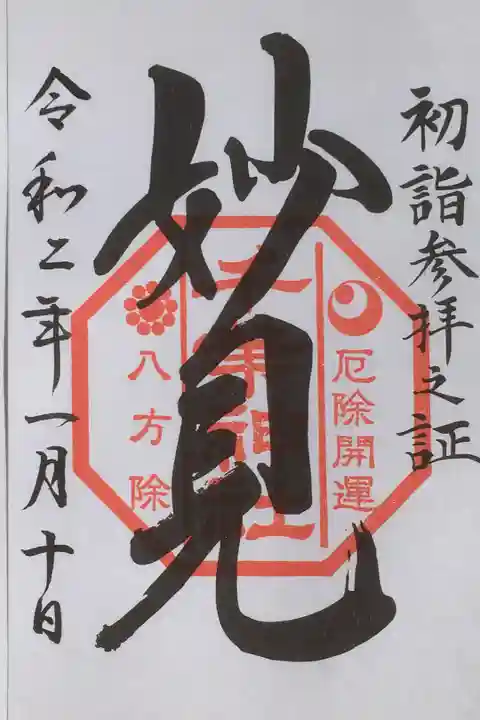 初詣参拝之証
妙見
厄除開運
八方除
令和二年一月十日